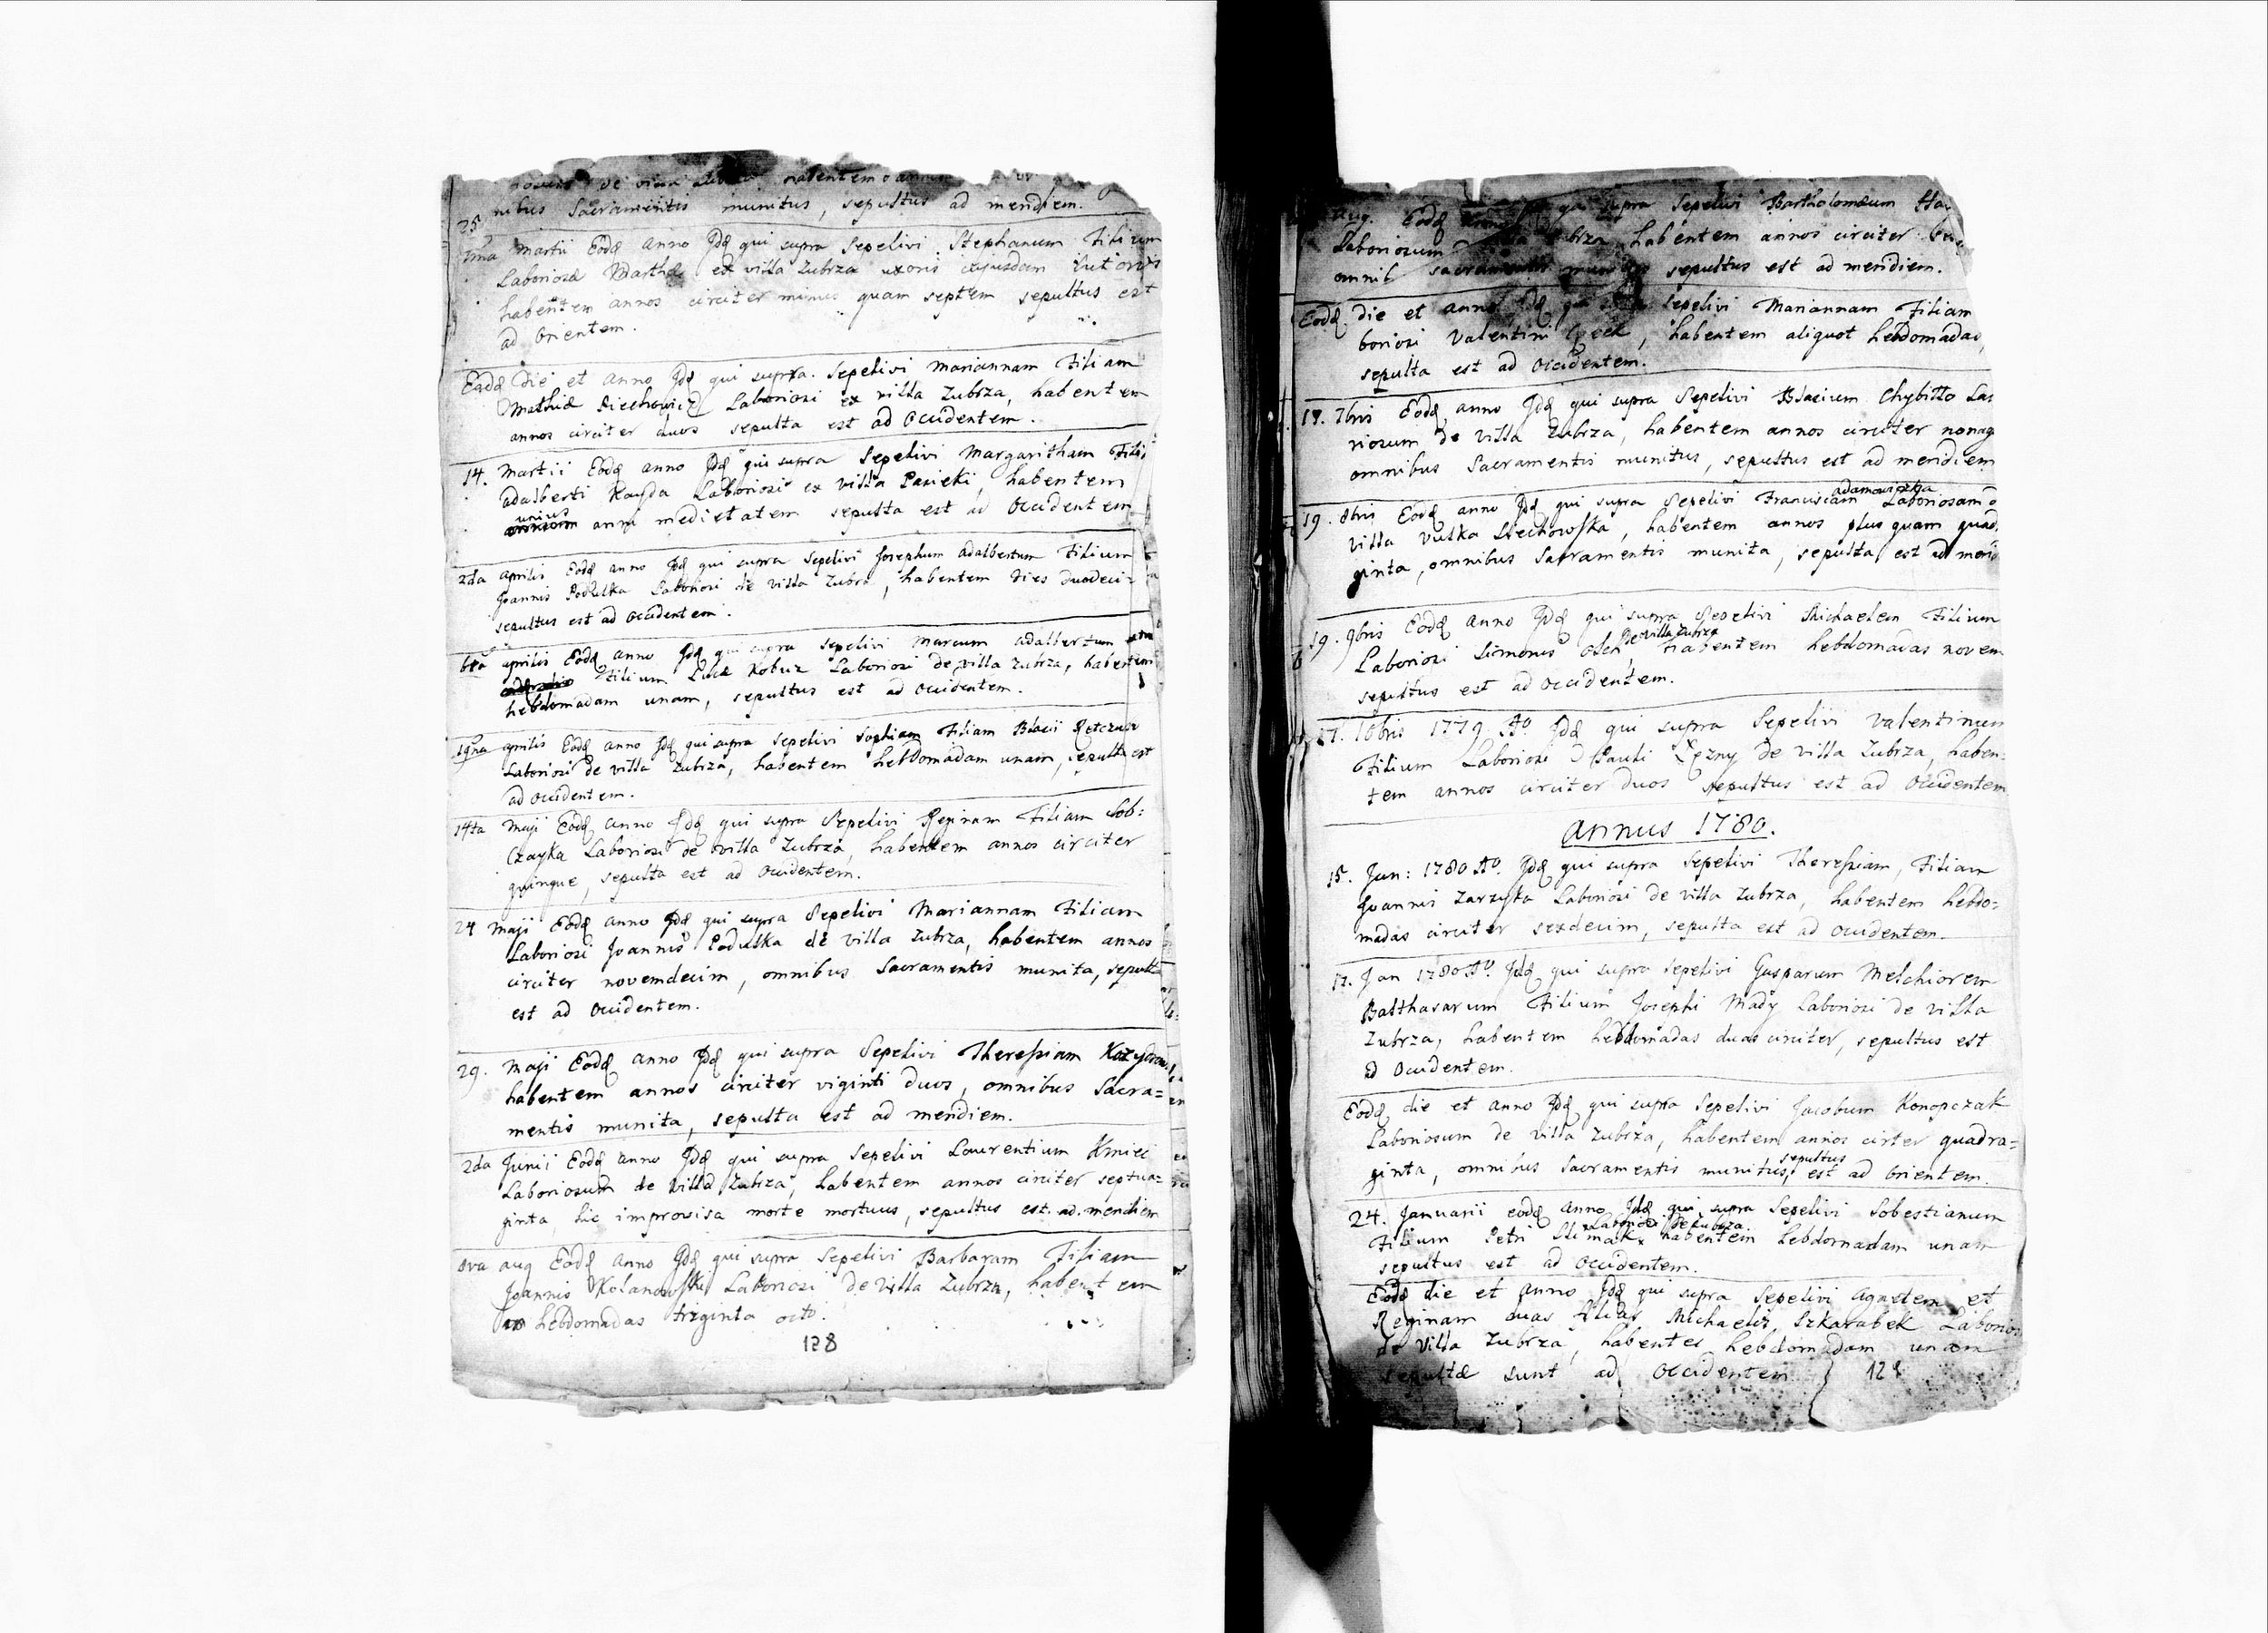 habentem annos
25 nibus Sacramentis munitus, sepultus ad meridiem.
1ma Martii Eodq anno Jdq qui supra Sepelivi Stephanum Filium
Laboriosæ Marthæ ex villa Zubrza uxoris cujusdam
habentem annos circiter minus quam septem sepultus est
ad Orientem.
Eodq die et anno Jdq qui supra Sepelivi Mariannam Filiam
Mathiæ Laboriosi ex villa Zubrza, habentem
annos circiter duos sepulta est ad Occidentem.
14. Martii Eodq anno Jdq qui supra Sepelivi Margaritham Fili
adalberti Kayda Laboriosi ex villa Pasieki, habentem
unius
anni medietatem sepulta est ad Occidentem
2da aprilis Eodq anno Jdq qui supra Sepelivi Josephum adalbertum Filium
Joannis Poduszka Laboriosi de villa Zubrz, habentem dies duodeci-
sepultus est ad Occidentem.
6ta aprilis Eodq anno Jdq qui supra Sepelivi Marcum adalbertum
Filium Lucæ Kobuz Laboriosi de villa Zubrza, habentem
hebdomadam unam, sepultus est ad Occidentem.
19na aprilis Eodq anno Jdq qui supra Sepelivi Sophiam Filiam Blasii
Laboriosi de villa Zubrza, habentem hebdomadam unam, sepulta est
ad Occidentem.
14ta Maji Eodq anno Jdq qui supra Sepelivi Reginam Filiam Sob:
Czayka Laboriosi de villa Zubrza, habentem annos circiter
quinque, sepulta est ad Occidentem.
24 Maji Eodq anno Jdq qui supra Sepelivi Mariannam Filiam
Laboriosi Joannis Poduszka de villa Zubrza, habentem annos
circiter novemdecim, omnibus Sacramentis munita, sepulta
est ad Occidentem.
29. Maji Eodq anno Jdq qui supra Sepelivi Theressiam
habentem annos circiter viginti duos, omnibus Sacra=
mentis munita, sepulta est ad meridiem.
2da Junii Eodq anno Jdq qui supra Sepelivi Laurentium Kmiec
Laboriosum de villa Zubrza, habentem annos circiter septua=
ginta, hic improvisa morte mortuus, sepultus est ad meridiem
8va aug Eodq anno Jdq qui supra Sepelivi Barbaram Filiam
Joannis Kolanowski Laboriosi de villa Zubrza, habentem
hebdomadas triginta octo.
128
Aug. Eodq qui supra Sepelivi Bartholomæum
Laboriosum Zubrza habentem annos circiter
sepultus est ad meridiem.
Eodq die et anno Jdq qui supra Sepelivi Mariannam Filiam
boriosi Valentini, habentem aliquot hebdomadas,
sepulta est ad Occidentem.
17. 7bris Eodq anno Jdq qui supra Sepelivi Blasium Chybitto
riosum de villa Zubrza, habentem annos circiter nonag
omnibus Sacramentis munitus, sepultus est ad meridiem
19. 8bris Eodq anno Jdq qui supra Sepelivi Franciscam Laboriosam
villa Vulka, habentem annos plus quam quad
ginta, omnibus Sacramentis munita, sepulta est ad meri
19. 9bris Eodq anno Jdq qui supra Sepelivi Michaelem Filium
de villa Zubrza
Laboriosi Simonis, habentem hebdomadas novem
sepultus est ad Occidentem.
17. 10bris 1779 Ao Jdq qui supra Sepelivi Valentinum
Filium Laboriosi Pauli de villa Zubrza, haben:
tem annos circiter duos sepultus est ad Occidentem
Annus 1780.
15. Jan: 1780 Ao. Jdq qui supra Sepelivi Theressiam, Filiam
Joannis Zarzyka Laboriosi de villa Zubrza, habentem hebdo=
madas circiter sexdecim, sepulta est ad Occidentem.
17. Jan 1780 Ao. Jdq qui supra Sepelivi Gasparum Melchiorem
Balthasarum Filium Josephi Mady Laboriosi de villa
Zubrza, habentem hebdomadas duas circiter, sepultus est
ad Occidentem.
Eodq die et anno Jdq qui supra Sepelivi Jacobum Konopczak
Laboriosum de villa Zubrza, habentem annos cirter quadra=
sepultus
ginta, omnibus Sacramentis munitus, est ad Orientem.
24. Januarii eodq anno Jdq qui supra Sepelivi Sobestianum
Laboriosi de Zubrza
Filium Petri habentem hebdomadam unam
sepultus est ad Occidentem.
Eodq die et anno Jdq qui supra Sepelivi Agnetem et
Reginam duas filias Michaelis Szkarabek Laborios
de villa Zubrza, habentes hebdomadam unam
sepultæ sunt ad Occidentem